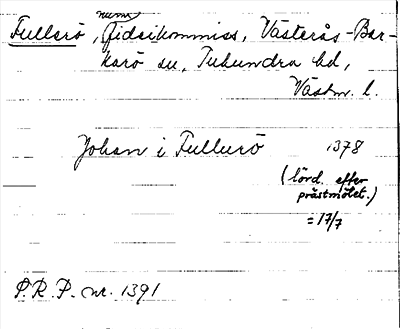 Fullerö, numm. fideikommiss, Västerås-Bar-
karö sn, Tuhundra hd,
Västm. l.
Johan i Fullurö 1378
(lörd. efter
prästmötet.)
= 17/7
P.R.P. nr. 1391